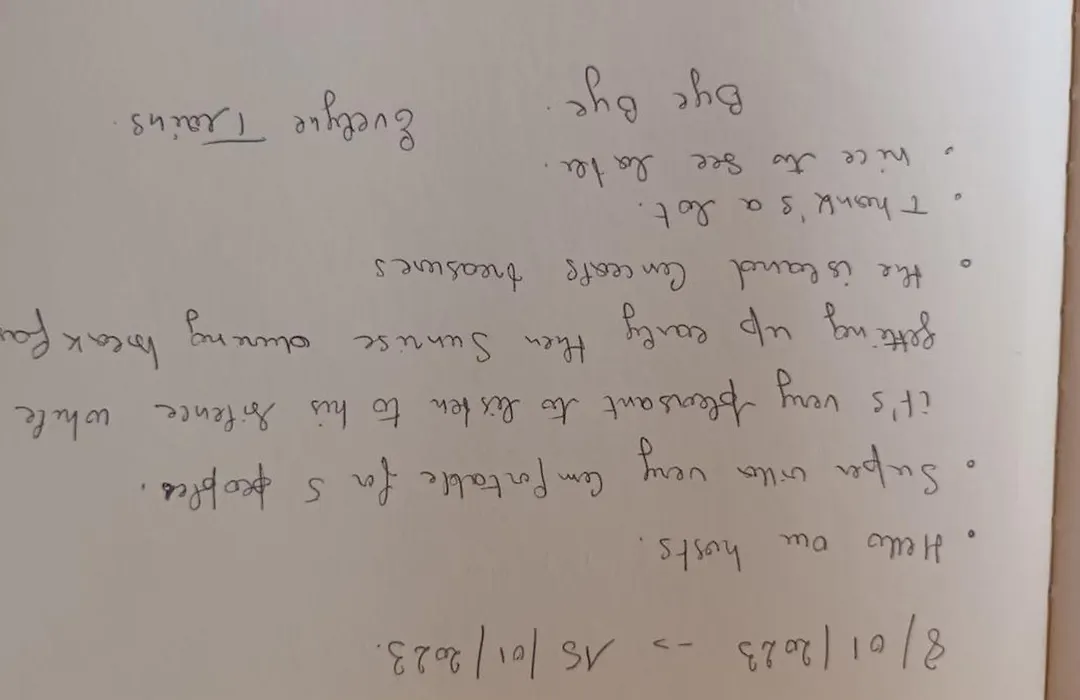 8/01/2023 -> 15/01/2023.
• Hello our hosts.
• Super villa very Comfortable for 5 peoples.
it's very pleasant to listen to his silence while
getting up early then Sunrise during break fas
• the island Conceals treasures
• Thank's a lot.
• nice to see later.
Bye Bye.
Evelyne Trains.